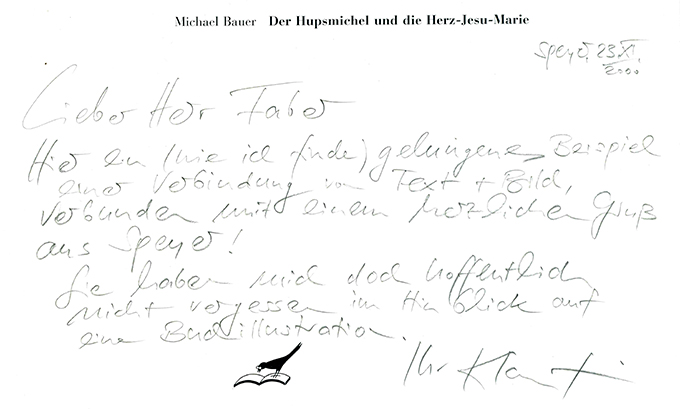 Michael Bauer Der Hupsmichel und die Herz-Jesu-Marie
Speyer, 23.XI.
2000
Lieber Herr Faber
Hier ein (wie ich finde) gelungenes Beispiel
einer Verbindung von Text + Bild,
verbunden mit einem herzlichen Gruß
aus Speyer!
Sie haben mich doch hoffentlich
nicht vergessen im Hinblick auf
eine Buchillustration.
Ihr